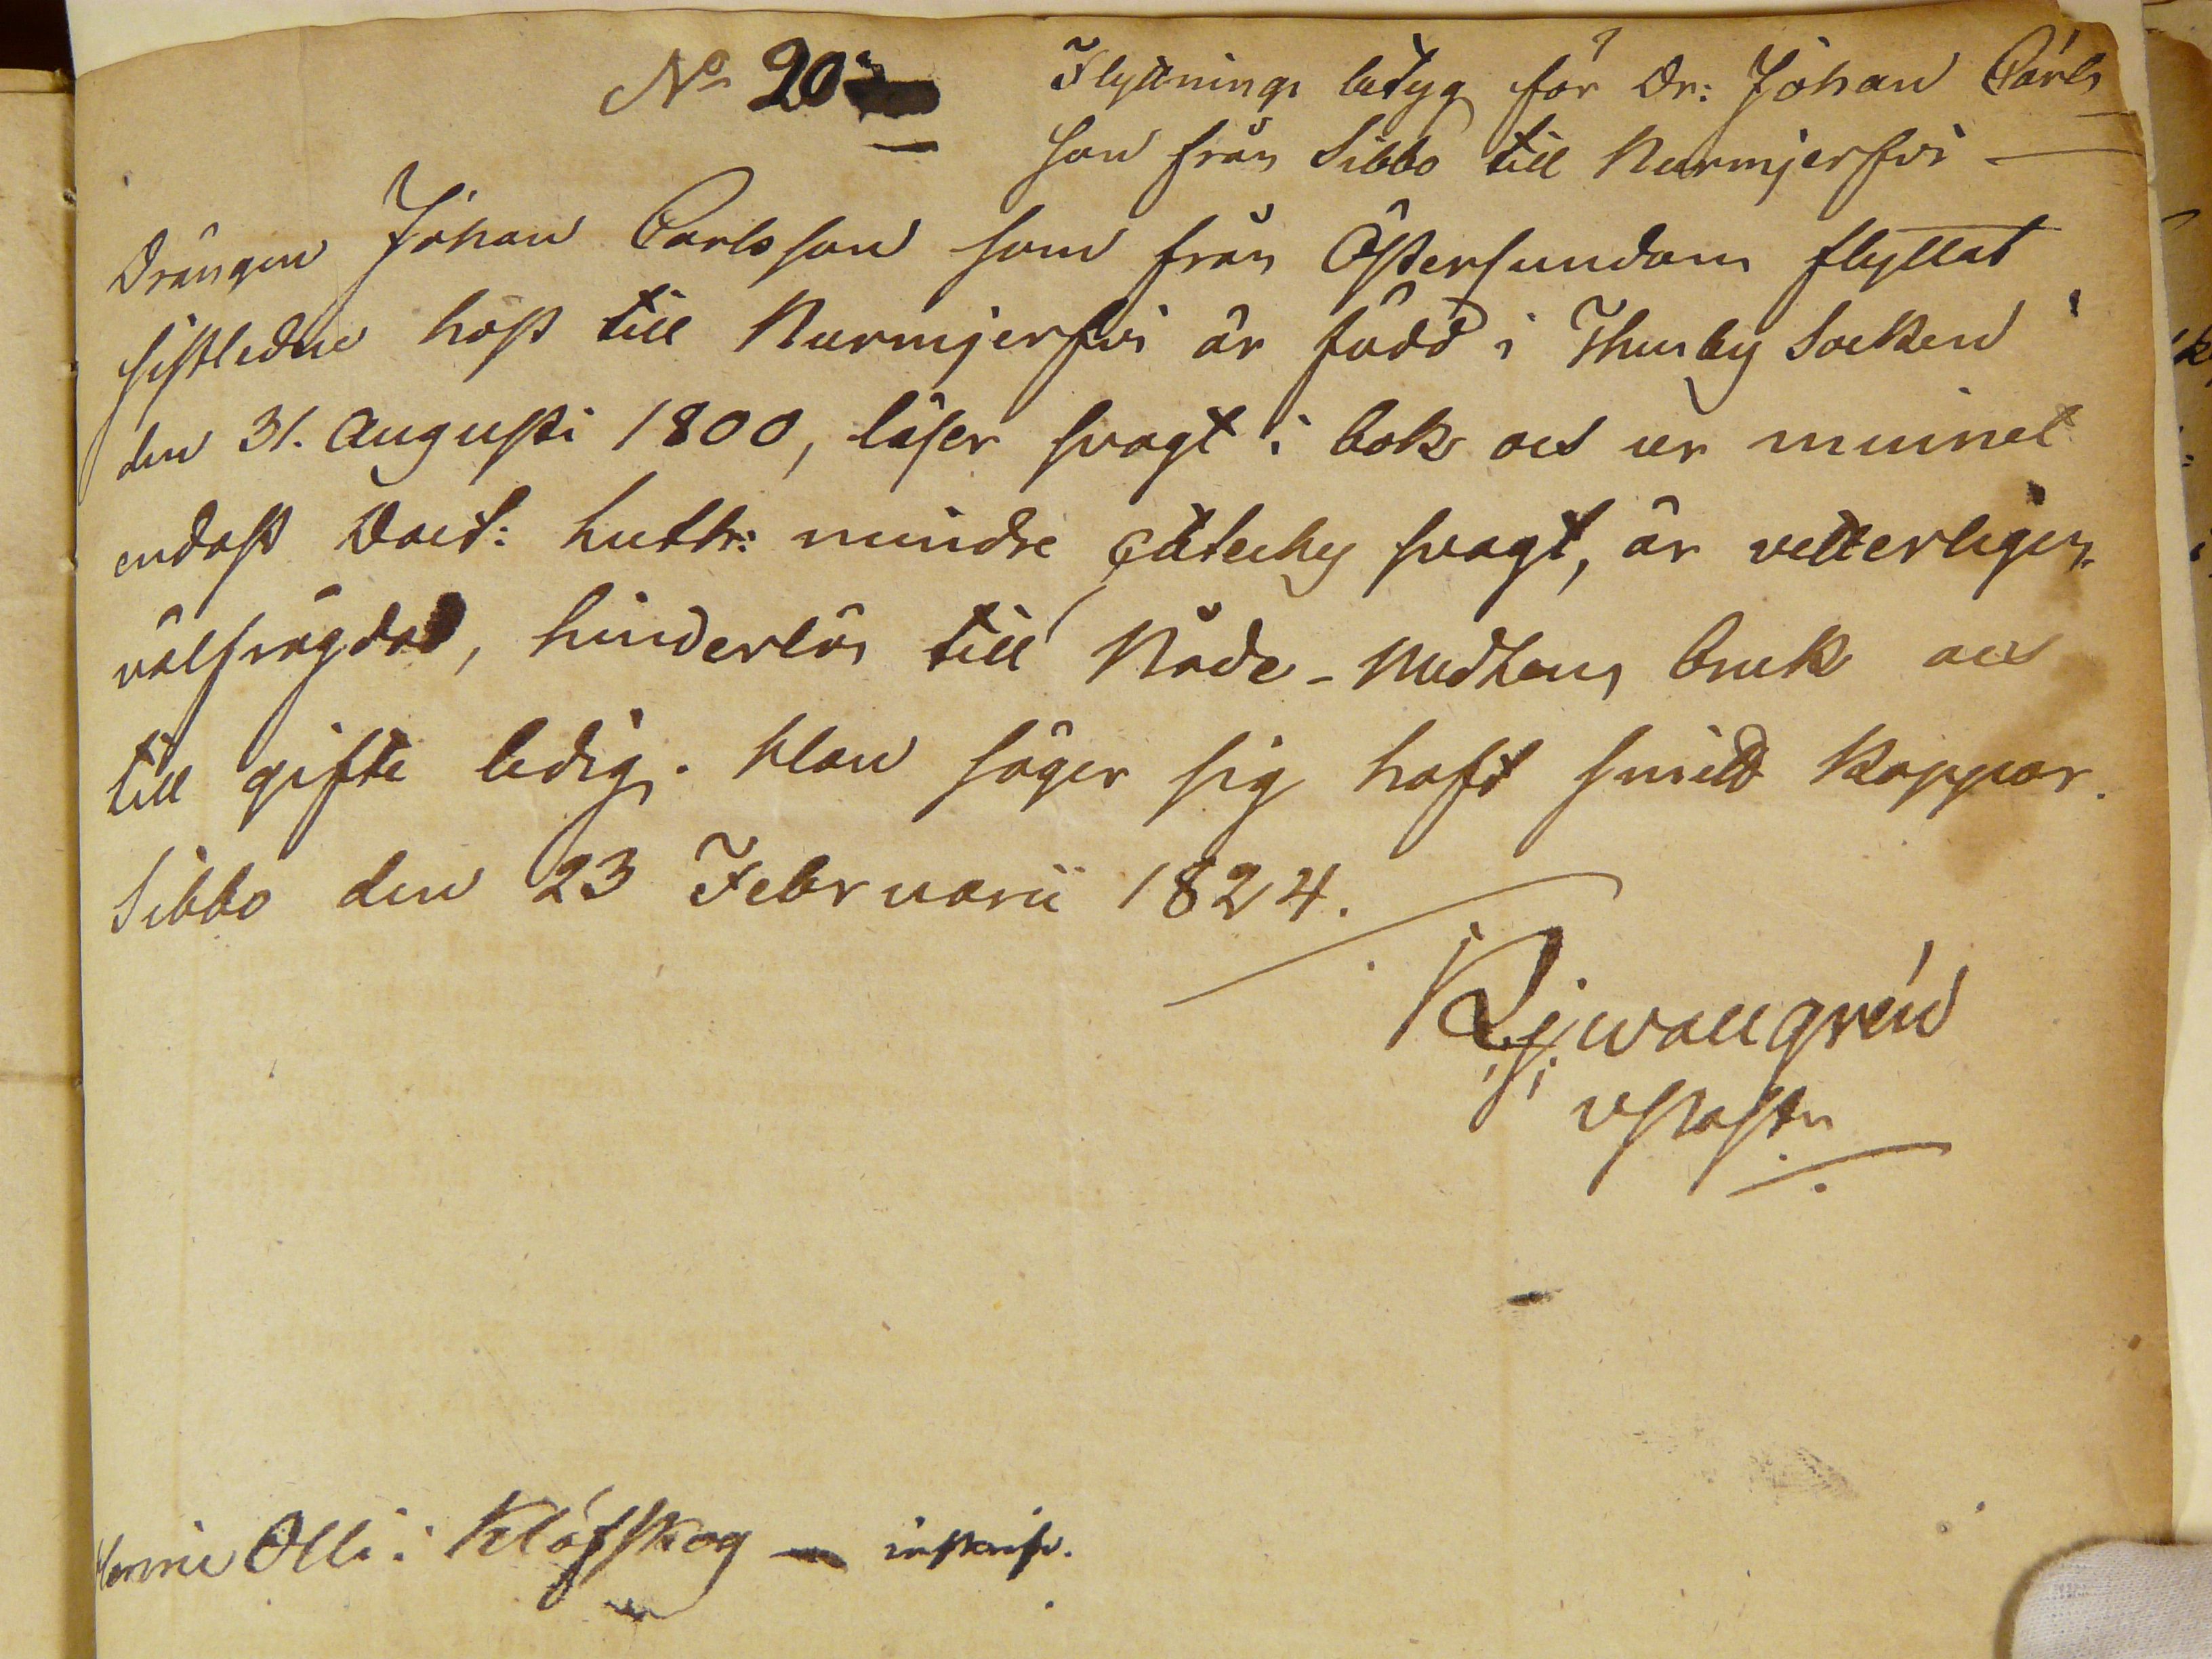 No 20
Flyttnings betyg för Dr: Johan Carls
son från Sibbo till Nurmjerfvi
Drängen Johan Carlsson som från Östersundom flyttat
sistledne höst till Nurmjerfvi är född i Thusby Socken
den 31. Augusti 1800, läser svagt i bok och ur minnet
endast Doct: Luth: mindre Cateches svagt, är vetterligen
välfrägdad, hinderlös till Nåde-Medlens bruk och
till gifte ledig. Han säger sig haft smitt koppor.
Sibbo den 23 Februarii 1824.
Wallgrén
VPastor
Olli i Klöfskog — inskrifv.